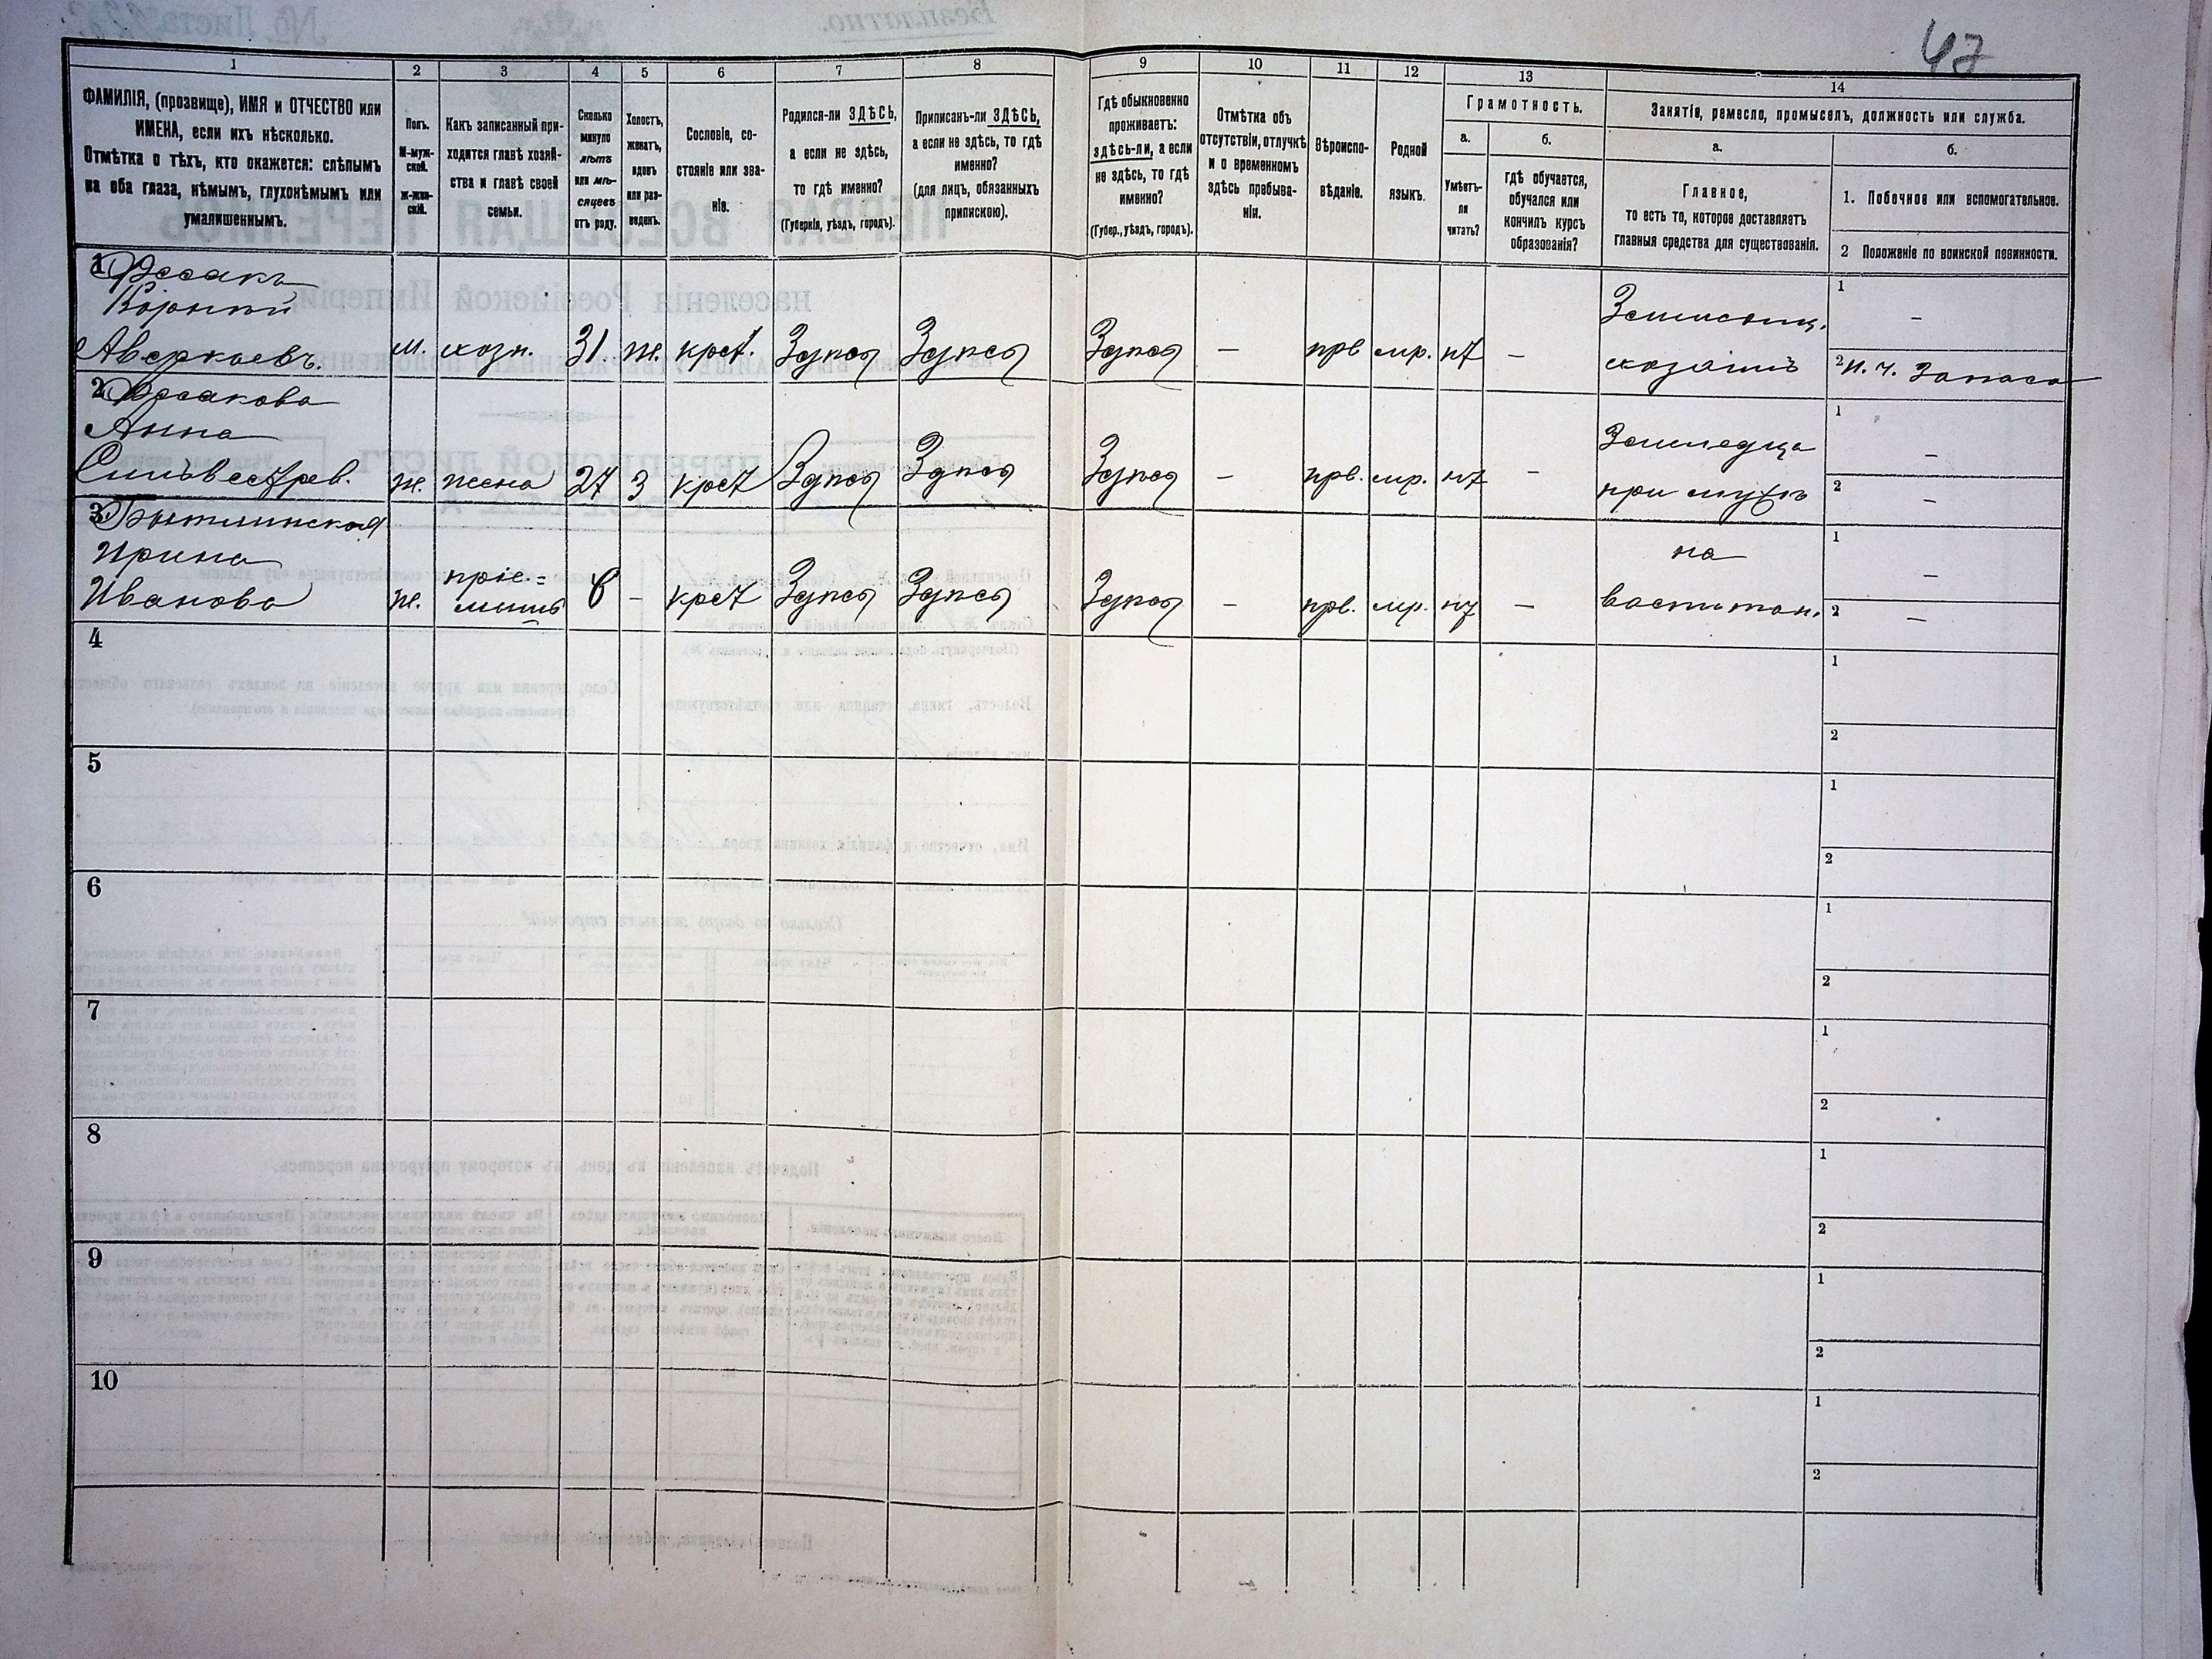 47
1
2
3
4
5
6
7
8
9
10
11
12
13
14
ФАМИЛІЯ, (прозвище), ИМЯ и ОТЧЕСТВО или
ИМЕНА, если ихъ нѣсколько.
Отмѣтка о тѣхъ, кто окажется: слѣпымъ
на оба глаза, нѣмымъ, глухонѣмымъ или
умалишеннымъ.
Полъ.
М-муж-
ской.
ж-жен-
скій.
Какъ записанный при-
ходится главѣ хозяй-
ства и главѣ своей
семьи.
Сколько
минуло
лѣтъ
или мѣ-
сяцевъ
отъ роду.
Холостъ,
женатъ,
вдовъ
или раз-
веденъ.
Сословіе, со-
стояніе или зва-
ніе.
Родился-ли ЗДѢСЬ,
а если не здѣсь,
то гдѣ именно?
(Губернія, уѣздъ, городъ).
Приписанъ-ли ЗДѢСЬ,
а если не здѣсь, то гдѣ
именно?
(для лицъ, обязанныхъ
припискою).
Гдѣ обыкновенно
проживаетъ:
здѣсь-ли, а если
не здѣсь, то гдѣ
именно?
(Губер., уѣздъ, городъ).
Отмѣтка объ
отсутствіи, отлучкѣ
и о временномъ
здѣсь пребыва-
ніи.
Вѣроиспо-
вѣданіе.
Родной
языкъ.
Грамотность.
а.
б.
Умѣетъ-
ли
читать?
гдѣ обучается,
обучался или
кончилъ курсъ
образованія?
Занятіе, ремесло, промыселъ, должность или служба.
а.
б.
Главное,
то есть то, которое доставляетъ
главныя средства для существованія.
1. Побочное или вспомогательное.
2 Положеніе по воинской повинности.
1
Корнѣй
Аверкіевъ.
м. хозн. 31. ж. крст. Здпсь Здпсь Здпсь – прв мр. нт –
хозяинъ
1 –
2 н. ч. Запаса
2
Анна
Сильвестрев.
ж. жена 27 З крст Здпсь Здпсь Здпсь – прв. мр. нт –
при мужѣ
1 –
2 –
3
Ирина
Иванова
ж. пріе-
мышъ 6 – крст Здпсь Здпсь Здпсь – прв. мр. нт –
на
воспитан.
1 –
2 –
4
1
2
5
1
2
6
1
2
7
1
2
8
1
2
9
1
2
10
1
2